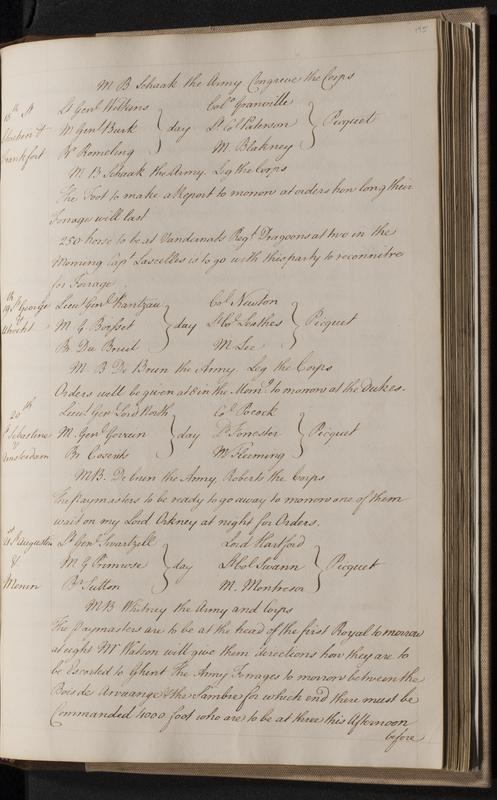 195
M B Schaak the Army Congreve the Corps
18th St Lt Genl Wilkins Colo Granville
Sebastien & M Genl Burk } day Lt Col Paterson } Picquet
Frankfort Br Romeling M Blakney
M B Schaak the Army. Leg the Corps
The Foot to make a Report to morrow at orders how long their
Forrage will last
250 horse to be at Vandernats Regt Dragoons at two in the
Morning Capt Lascelles is to go with this party to reconnitre
for Forrage
19th St George Lieut Genl Rantzau Col Newton
Utrecht M G Boisset } day Lt Col Leathes } Picquet
Br Du Breul M Lee
M. B De Brun the Army Leg the Corps
Orders will be given at 8 in the Morng to morrow at the Dukes.
20th Lieut Genl Lord North Col Pocock
St Sebastine M Genl Gorvain } day Lt Forrester } Picquet
Amsterdam Br Cosents M Fleming
MB. De brun the Army Roberts the Corps
The Paymasters to be ready to go away to morrow one of them
wait on my Lord Orkney at night for Orders.
21st St Augustin Lt Genl Swartzell Lord Hartford
& M G Primrose } day Lt Col Swann } Picquet
Br Sutton M. Montresor
MB Whitney the Army and Corps
The Paymasters are to be at the head of the first Royal to morrow
at eight Mr Watson will give them directions how they are to
be Escorted to Ghent The Army Forrages to morrow between the
Bois de & the Sambre for which end there must be
Commanded 4000 foot who are to be at three this Afternoon
before